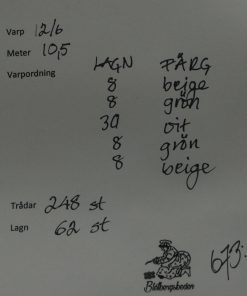 Varp 12/6
Meter 10,5
Varpordning LAGN FÄRG
8 beige
8 grön
30 vit
8 grön
8 beige
Trådar 248 st
Lagn 62 st
673:-
Blåbergsboden